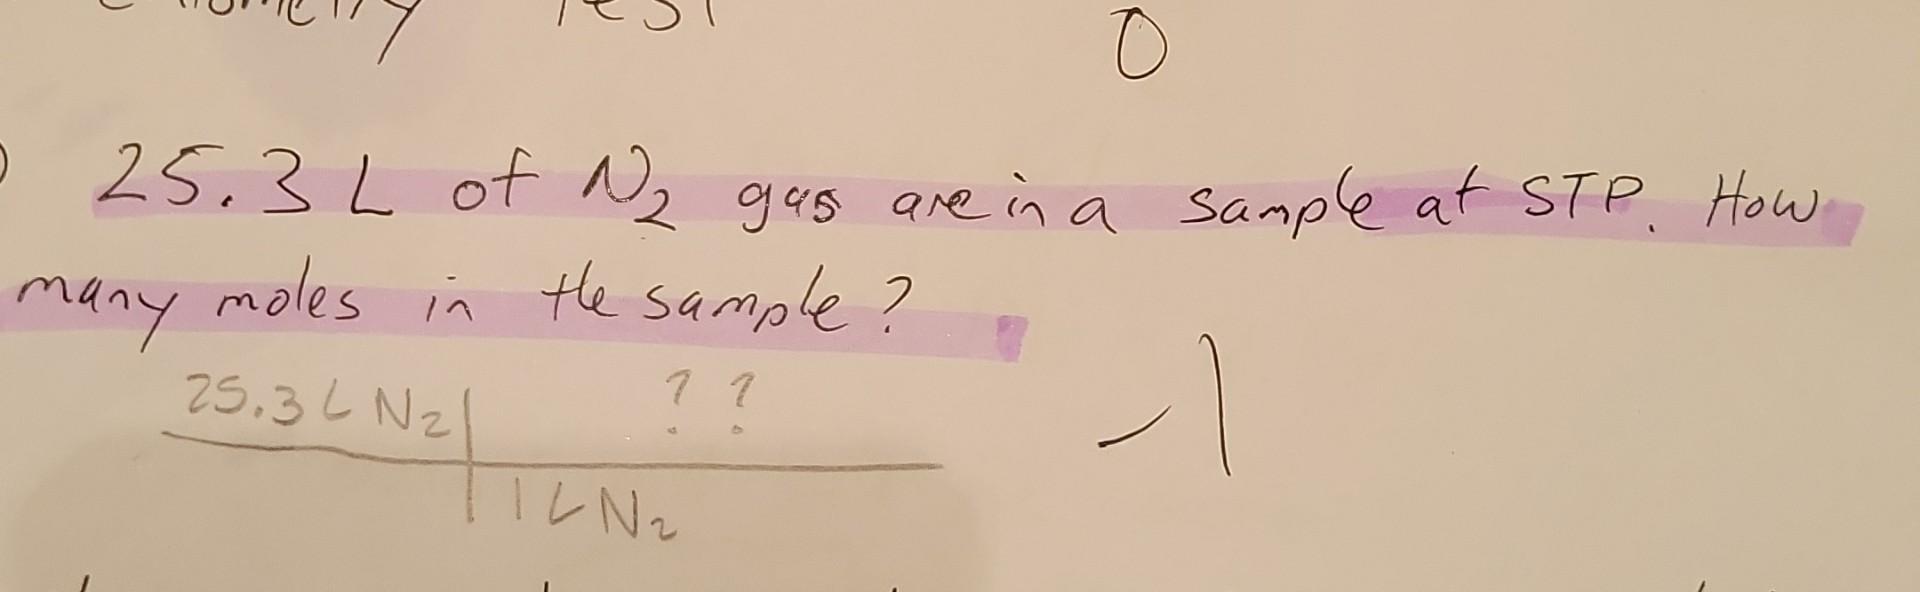 Test
0
25.3 L of N2 gas are in a sample at STP. How
many moles in the sample?
25.3 L N2 ? ?
-1
1 L N2